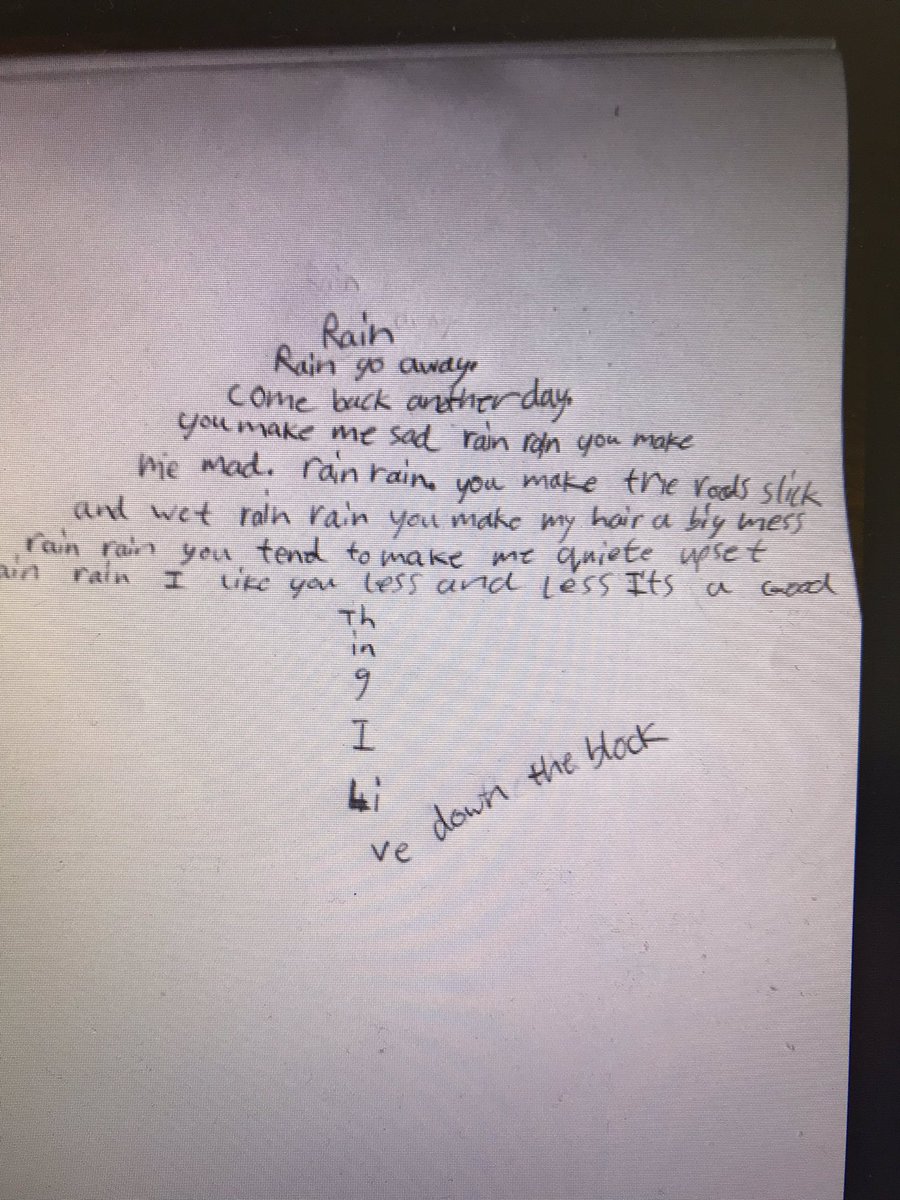 Rain
Rain go away.
come back another day.
you make me sad rain rain you make
me mad. rain rain. you make the roads slick
and wet rain rain you make my hair a big mess
rain rain you tend to make me quiete upset
ain rain I like you less and less Its a Good
Th
in
g
I
Li
ve down the block